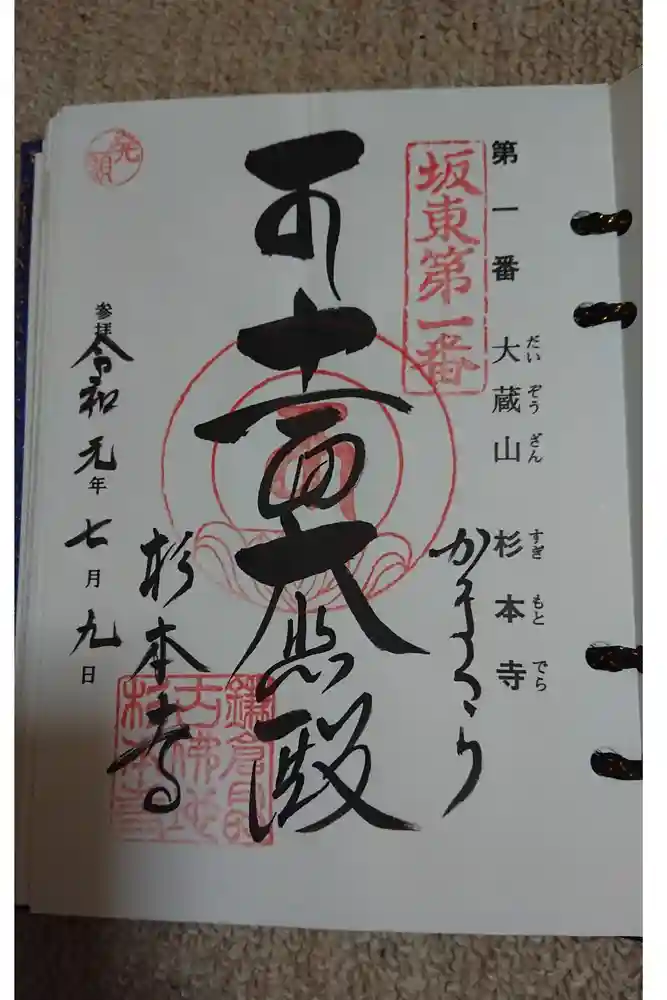 だいぞうざん すぎもとでら
第一番 大蔵山 杉本寺
坂東第一番
かまくら
十一面大悲殿
杉本寺
鎌倉最
古佛地
杉本寺
発願
参拝 令和元年七月九日